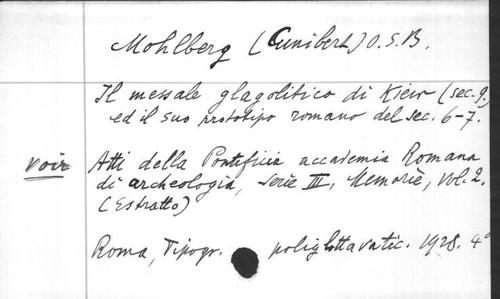 Mohlberg (Cunibert) O.S.B.
Il messale glagolitico di Kiew (sec. 9)
ed il suo prototipo romano del sec. 6-7.
voir Atti della Pontificia accademia Romana
di archeologia, Serie III, Memorie, vol. 2.
(Estratto)
Roma, Tipogr. poliglotta vatic. 1928. 4°